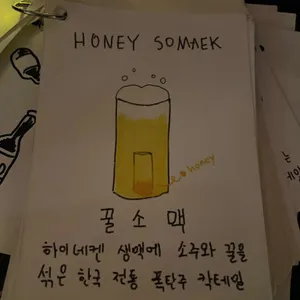 HONEY SOMAEK
honey
꿀 소 맥
하이네켄 생맥에 소주와 꿀을
섞은 한국 전통 폭탄주 칵테일